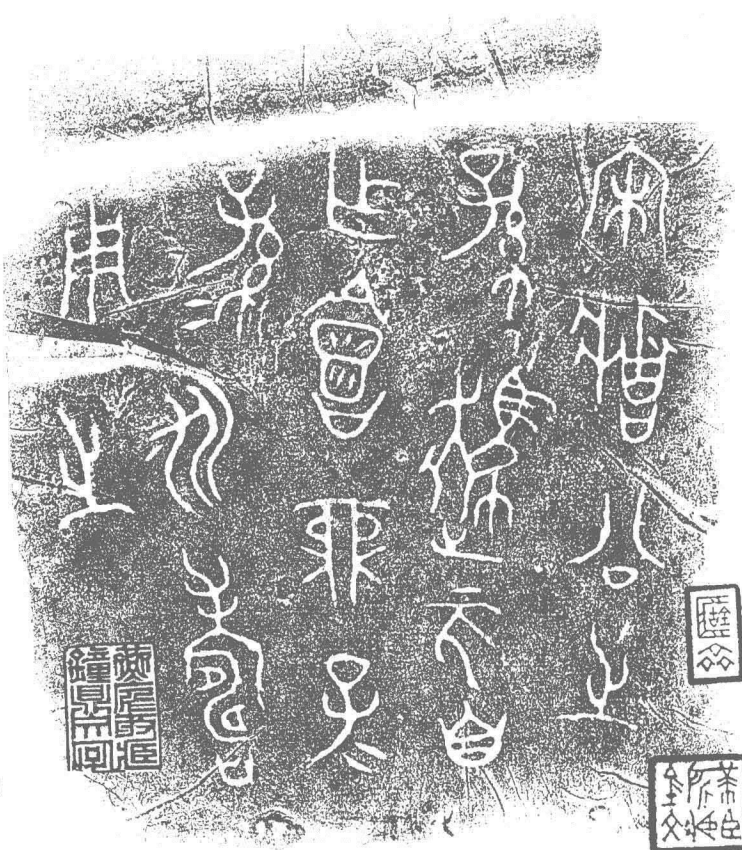 宋莊公之
孫趞亥自
乍會鼎子
孫永壽
用之